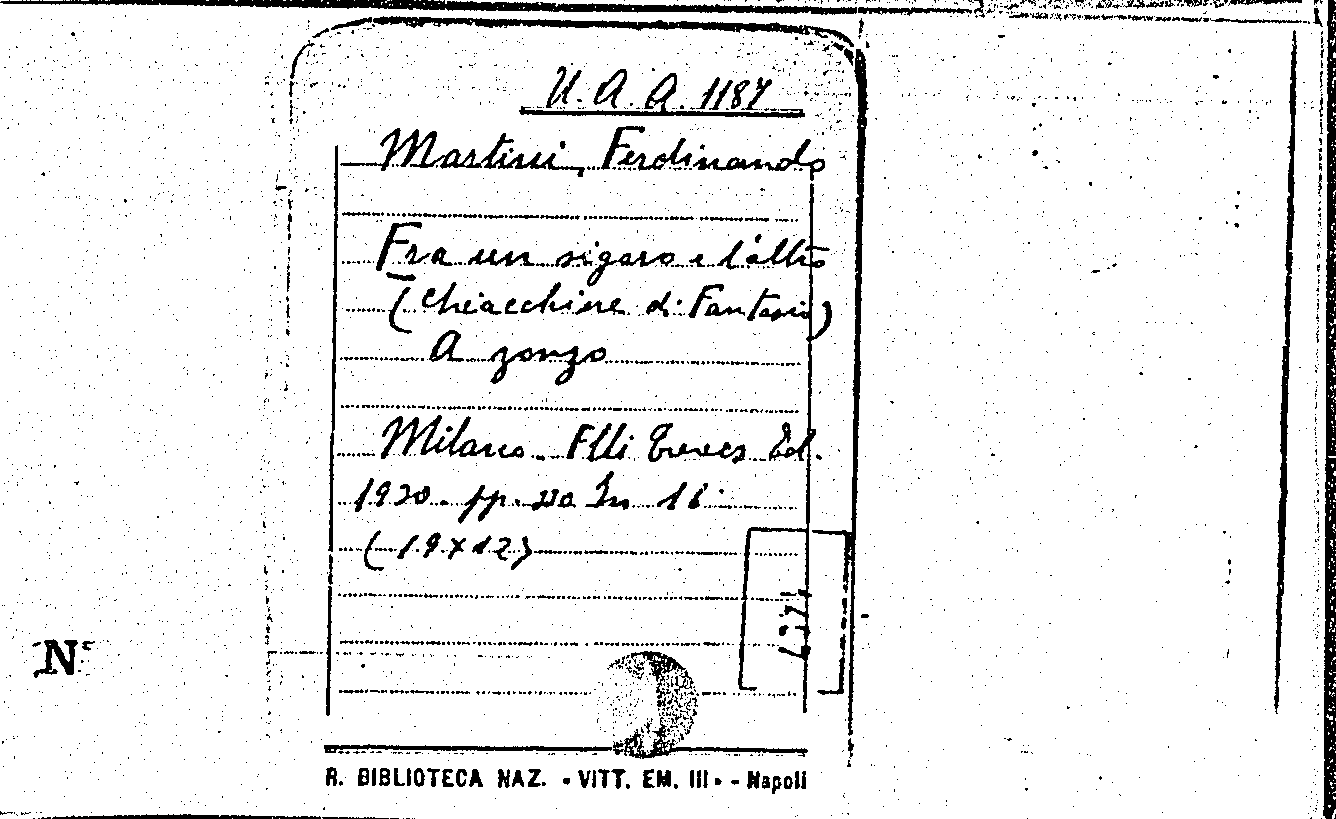 U. A. A. 1187
Martini, Ferdinando
Fra un sigaro e l'altro
(Chiacchiere di Fantasio)
A zonzo
Milano. Flli Treves Ed.
1930. pp. 220 In 16°
(19 x 12)
N°
R. BIBLIOTECA NAZ. « VITT. EM. III » - Napoli